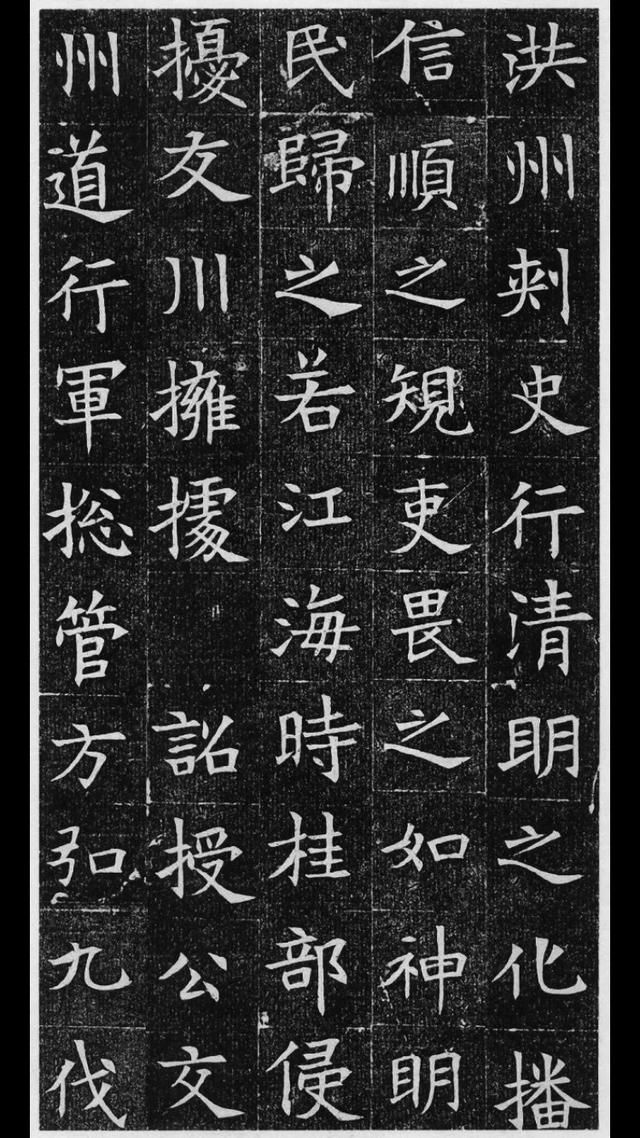 洪州刾史行清明之化播
信順之規吏畏之如神明
民歸之若江海時桂部侵
擾友川擁據 詔授公交
州道行軍総管方弘九伐